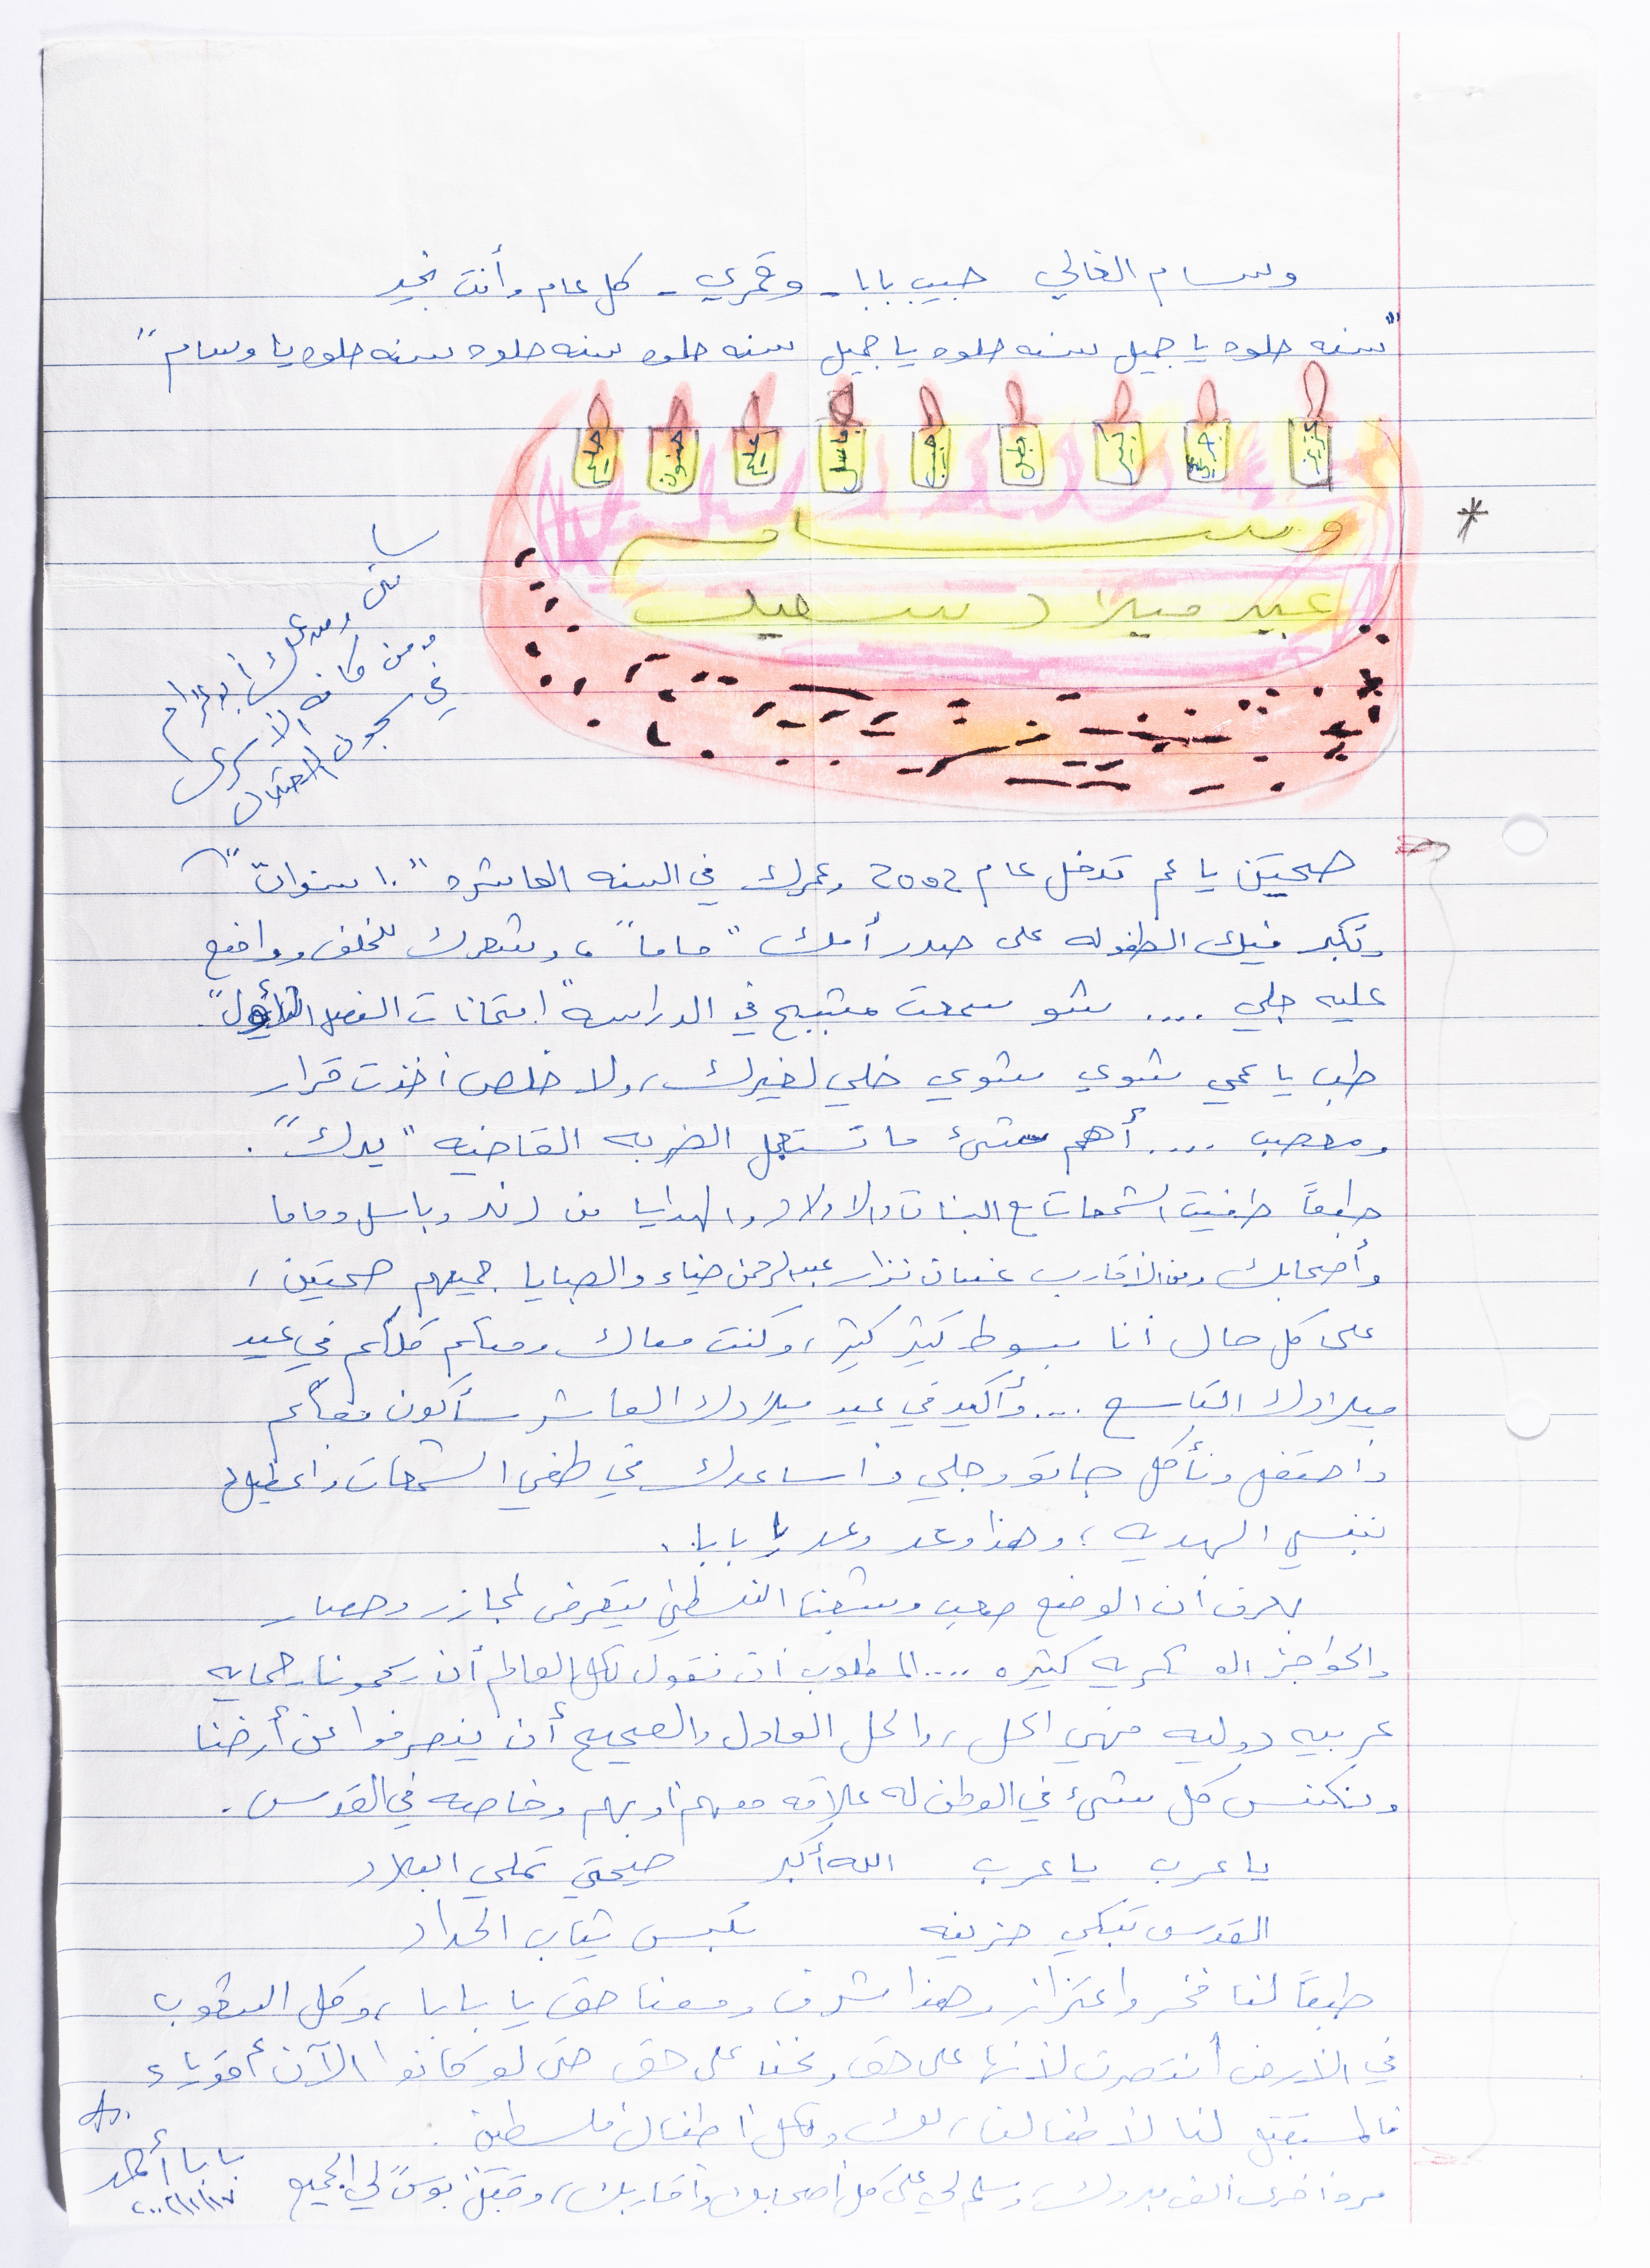 وسام الغالي حبيب بابا - وقمري - كل عام وأنت بخير
"سنه حلوه يا جميل سنه حلوه يا جميل سنه حلوه سنه حلوه سنه حلوه يا وسام"
عزيز جريئ كبير بطل حبيب باسل عليم حنون حليم
وسام
عيد ميلاد سعيد
سامي وصدقي أبو غرام
ومن كافة الأسرى
في سجون الاحتلال
صحيتن يا عم تدخل عام 2002 وعمرك في السنه العاشره "١٠ سنوات"
وتكبر فيك الطفوله على صدر أمك "ماما"، وشعرك للخلف وواضع
عليه جلي .... شو سمعت مشبح في الدراسه "امتحانات الفصل الأول"
طب يا عمي شوي شوي خلي لغيرك، ولا خلص أخذت قرار
ومعصب .... أهم شئ ما تستعمل الضربه القاضيه "يدك".
طبعاً طفيت الشمعات مع البنات والاولاد والهدايا من رند وباسل وماما
وأصحابك ومن الأقارب غسان نزار عبد الرحمن ضياء والصبايا جميعهم صحتين،
على كل حال أنا مبسوط كثير كثير، وكنت معاك ومعكم كلكم في عيد
ميلادك التاسع ... وأكيد في عيد ميلادك العاشر سأكون معكم
واحتفل ونأكل جاتو وجلي وأساعدك في طفي الشمعات واعطيك
بنفسي الهديه، وهذا وعد وعد يا بابا.
بعرف أن الوضع صعب وشعبنا الفلسطيني يتعرض لمجازر وحصار
والحواجز العسكريه كثيره .... المطلوب أن نقول لكل العالم أن يحمونا حمايه
عربيه دوليه فهي الحل، والحل العادل والصحيح أن ينصرفوا عن أرضنا
ونكنس كل شئ في الوطن له علاقه معهم أو بهم وخاصه في القدس.
يا عرب يا عرب الله أكبر صيحتي تملي البلاد
القدس تبكي حزينه تلبس ثياب الحداد
طبعاً لنا فخر واعتزاز وهذا شرف ومعنا حق يا بابا، وكل الشعوب
في الأرض أنتصرت لأنها على حق ونحن على حق حتى لو كانوا الآن أقوياء
فالمستقبل لنا لأطفالنا، لك ولكل أطفال فلسطين.
مره أخرى ألف مبروك، وسلم لي على كل أصحابك وأقاربك، وقبل بوس لي الجميع
بابا أحمد